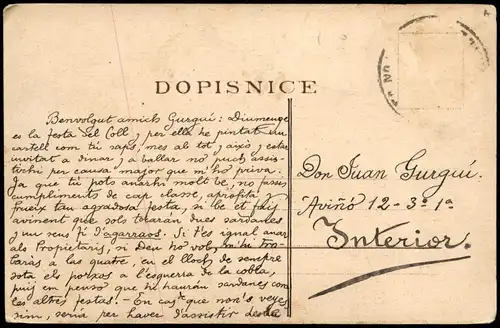 DOPISNICE
Benvolgut amich Gurguí: Diumenge
es la festa del Coll, y per ella he pintat un
cartell com tú saps, mes al tot, y aixó, y estar
invitat a dinar, y a ballar no puch assis-
tirhi per causa major que m'ho priva.
Ja que tú pots anarhi molt bé, no fasses
cumpliments de cap classe, aprofita y
frueix tan agradosa festa, si bé et faig
avinent que sols tocarán dues sardanes
y un seus fi d'agarraos. Si t'es igual anar
als Propietaris, si Deu ho vol, m'hi tro-
barás a las quatre, en el lloch de sempre
sota els porxos a l'esquerra de la cobla,
puig em penso que hi haurán sardanes com
les altres festas. - En cas que non's veyes-
sim, seria per haver d'assistir
Don Juan Gurguí.
Aviñó 12-3º-1ª
Interior.